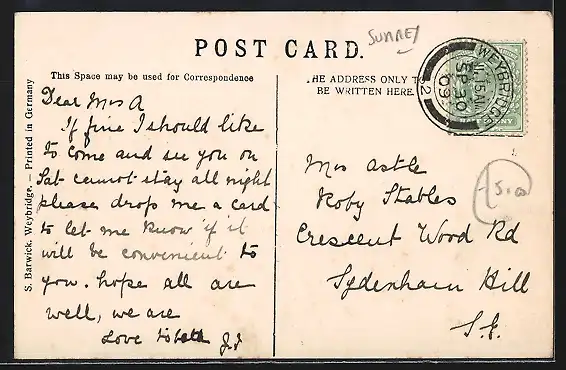 SURREY
POST CARD.
This Space may be used for Correspondence
HE ADDRESS ONLY T
BE WRITTEN HERE
WEYBRIDGE
SP 30
09
2
S. Barwick, Weybridge. — Printed in Germany
Dear Mrs A
If fine I should like
to come and see you on
Sat cannot stay all night
please drop me a card
to let me know if it
will be convenient to
you. hope all are
well, we are
Love to
Mrs Astle
Roby Stables
Crescent Wood Rd
Sydenham Hill
S.E.